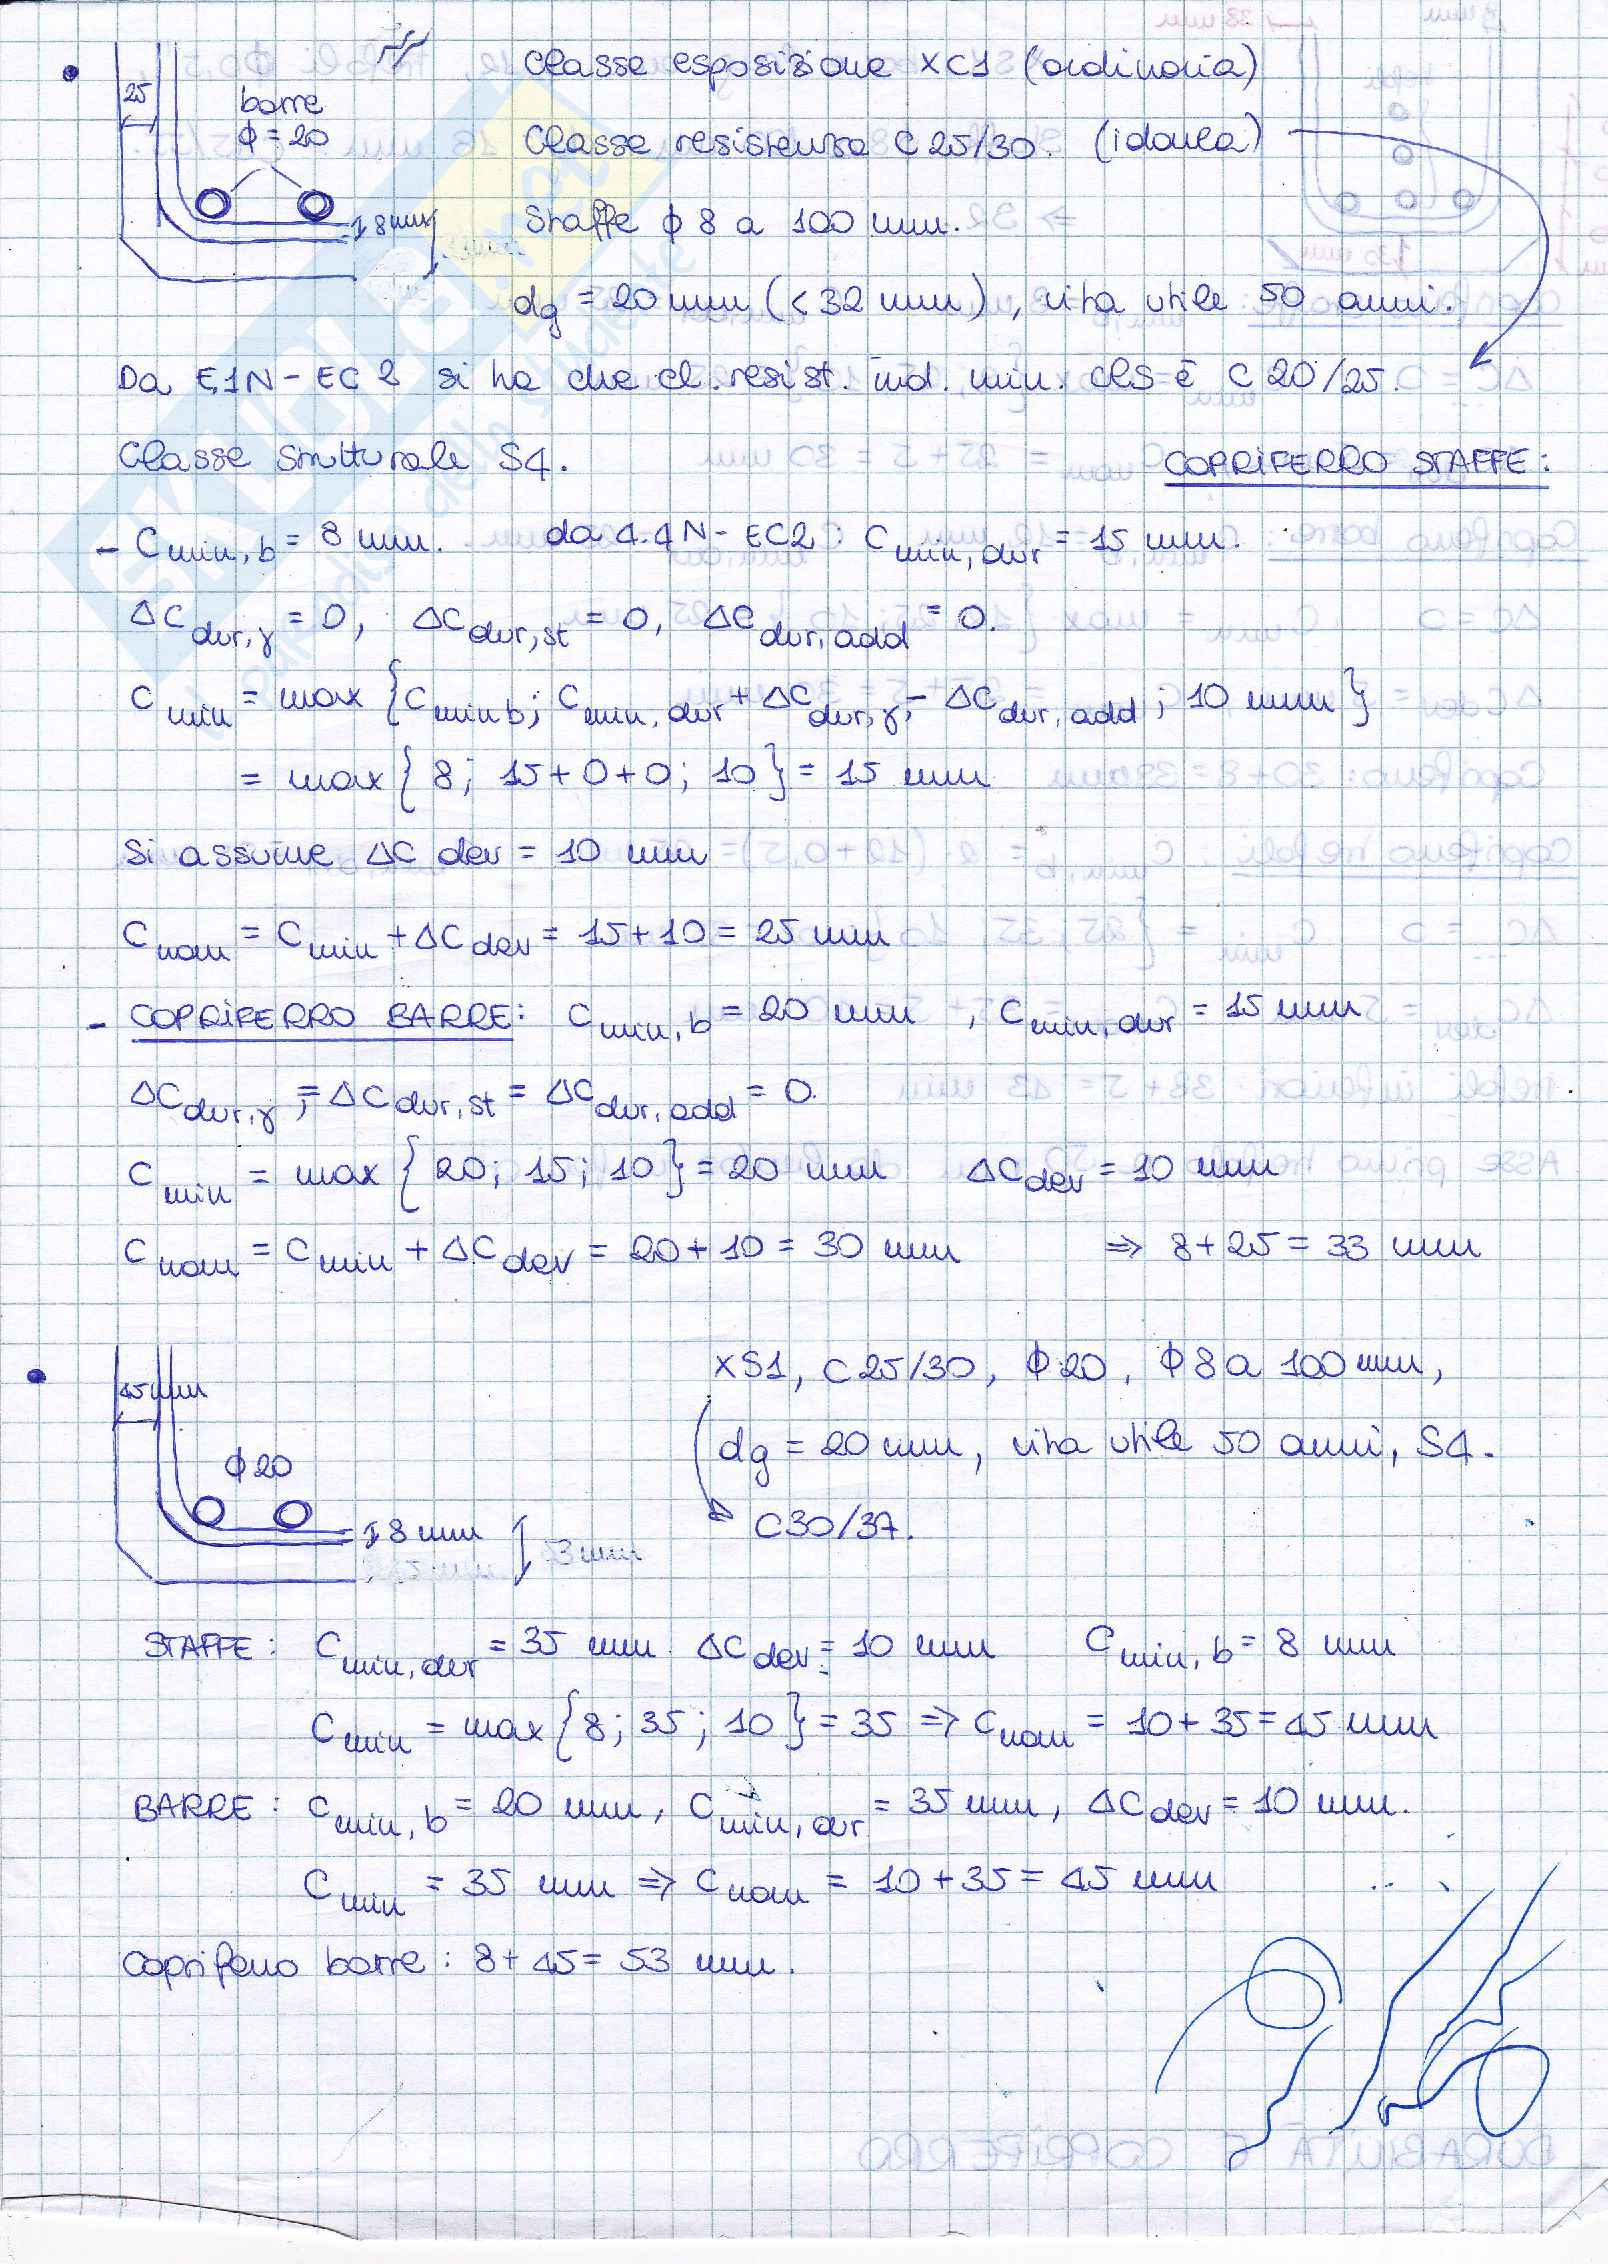 Classe esposizione XC1 (ordinaria)
25
barre
ϕ = 20
Classe resistenza C 25/30. (idonea)
8 mm
Staffe ϕ 8 a 100 mm.
dg = 20 mm (< 32 mm), vita utile 50 anni.
Da E.1N - EC2 si ha che cl. resist. ind. min. cls è C 20/25.
Classe strutturale S4.
COPRIFERRO STAFFE:
- Cmin,b = 8 mm. da 4.4N - EC2: Cmin,dur = 15 mm.
ΔCdur,γ = 0, ΔCdur,st = 0, ΔCdur,add = 0.
Cmin = max {Cmin b; Cmin,dur + ΔCdur,γ - ΔCdur,add; 10 mm}
= max {8; 15+0+0; 10} = 15 mm
Si assume ΔC dev = 10 mm
Cnom = Cmin + ΔCdev = 15+10 = 25 mm
- COPRIFERRO BARRE: Cmin,b = 20 mm, Cmin,dur = 15 mm
ΔCdur,γ = ΔCdur,st = ΔCdur,add = 0.
Cmin = max {20; 15; 10} = 20 mm ΔCdev = 10 mm
Cnom = Cmin + ΔCdev = 20+10 = 30 mm ⇒ 8+25 = 33 mm
XS1, C25/30, ϕ 20, ϕ 8 a 100 mm,
45 mm
dg = 20 mm, vita utile 50 anni, S4.
ϕ 20
C30/37.
8 mm
53 mm
STAFFE: Cmin,dur = 35 mm. ΔCdev = 10 mm Cmin,b = 8 mm
Cmin = max {8; 35; 10} = 35 ⇒ Cnom = 10+35 = 45 mm
BARRE: Cmin,b = 20 mm, Cmin,dur = 35 mm, ΔCdev = 10 mm.
Cmin = 35 mm ⇒ Cnom = 10+35 = 45 mm
Copriferro barre: 8+45 = 53 mm.